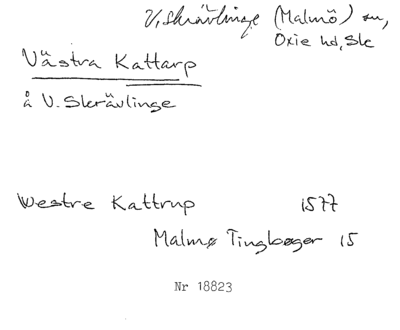 V. Skrävlinge (Malmö) sn,
Oxie hd, Sk
Västra Kattarp
å V. Skrävlinge
Westre Kattrup 1577
Malmø Tingbøger 15
Nr 18823